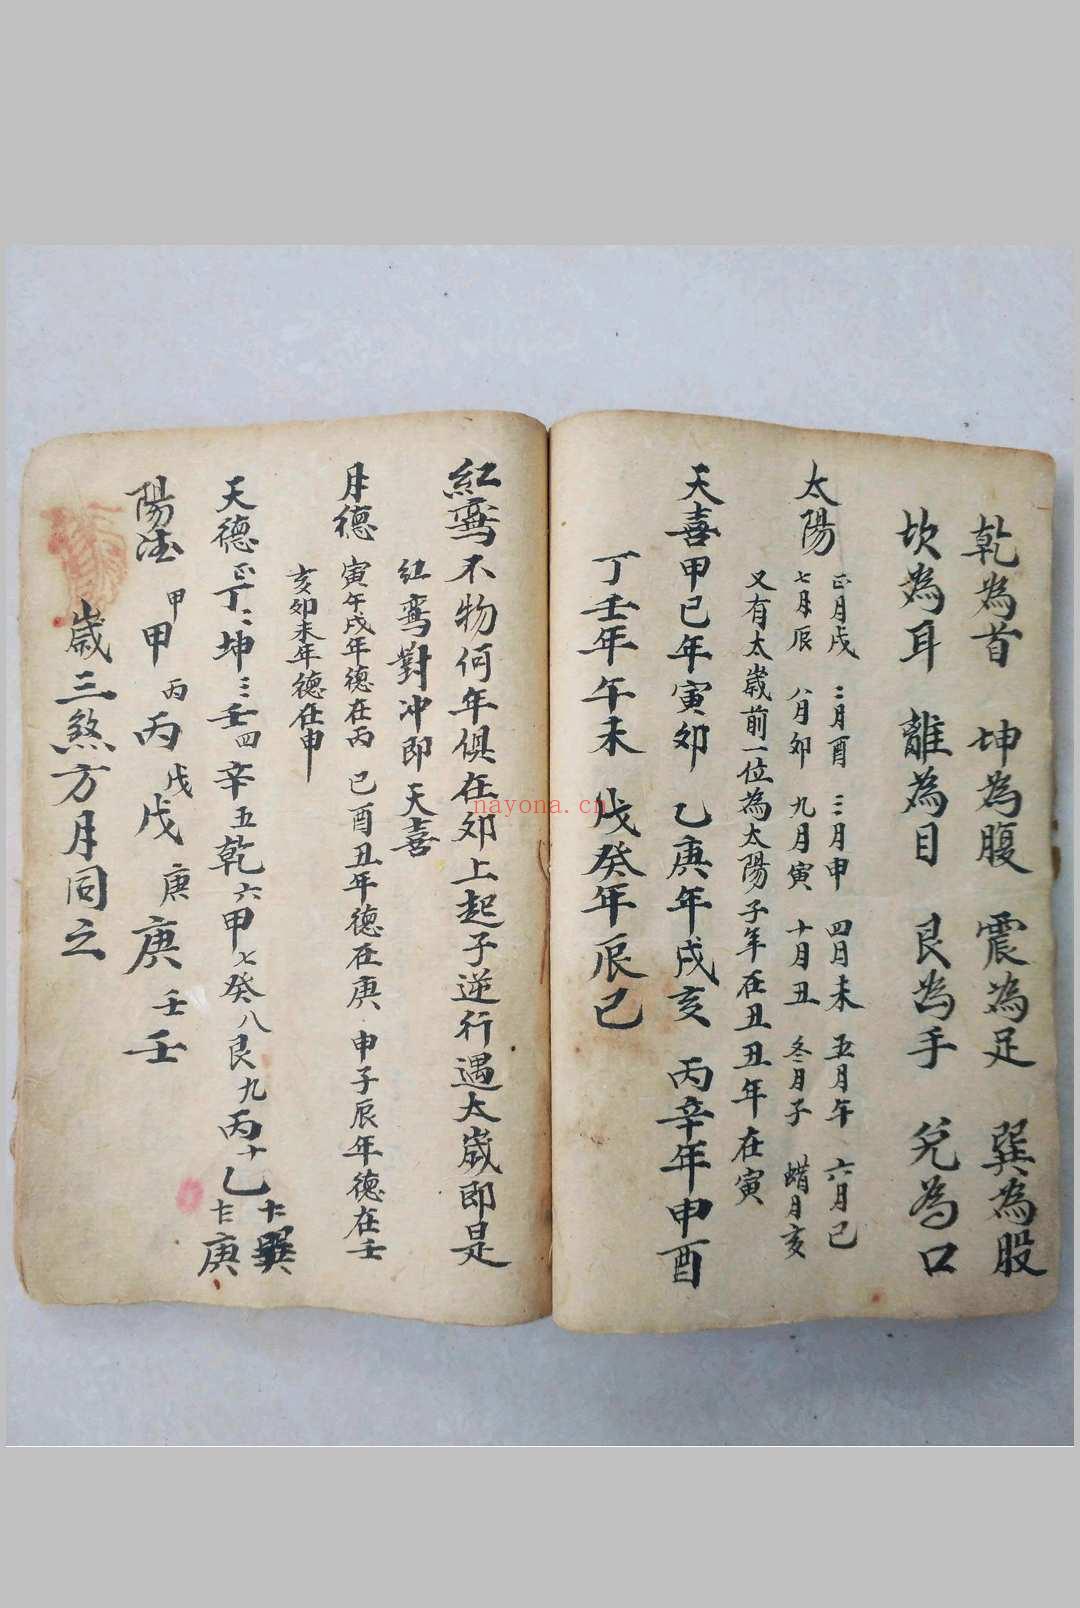 乾為首 坤為腹 震為足 巽為股
坎為耳 離為目 艮為手 兌為口
太陽 正月戌 二月酉 三月申 四月未 五月午 六月巳
七月辰 八月卯 九月寅 十月丑 冬月子 蜡月亥
又有太歲前一位為太陽子年在丑丑年在寅
天喜甲己年寅卯 乙庚年戌亥 丙辛年申酉
丁壬年午未 戊癸年辰巳
紅鸞不物何年俱在卯上起子逆行遇太歲即是
紅鸞對冲即天喜
月德 寅午戌年德在丙 巳酉丑年德在庚 申子辰年德在壬
亥卯未年德在申
天德正丁二坤三壬四辛五乾六甲七癸八艮九丙十乙
十一巽
十二庚
陽法 甲甲 丙丙 戊戊 庚庚 壬壬
歲三煞方月同之
nayona.cn